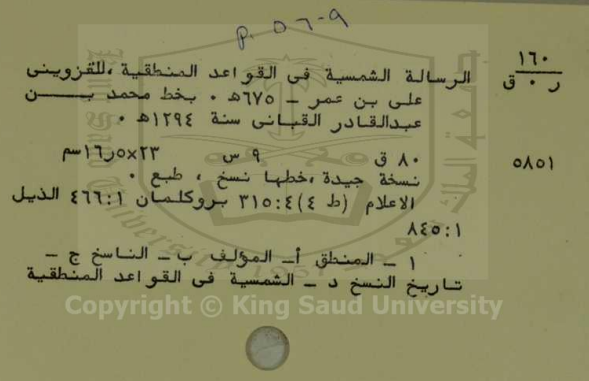 p. ٥٦-٩
١٦٠
ر ٠ ق
الرسالة الشمسية فى القواعد المنطقية ،للقزوينى
على بن عمر ـ ٦٧٥ه ٠ بخط محمد بــــن
عبدالقادر القبانى سنة ١٢٩٤ه ٠
٨٠ ق ٩ س ٢٣×١٦٫٥سم
٥٨٥١
نسخة جيدة ،خطها نسخ ، طبع ٠
الاعلام (ط ٤) ٣١٥:٤ بروكلمان ٤٦٦:١ الذيل
٨٤٥:١
١ ـ المنطق أـ المؤلف ب ـ الناسخ ج ـ
تاريخ النسخ د ـ الشمسية فى القواعد المنطقية
Copyright © King Saud University